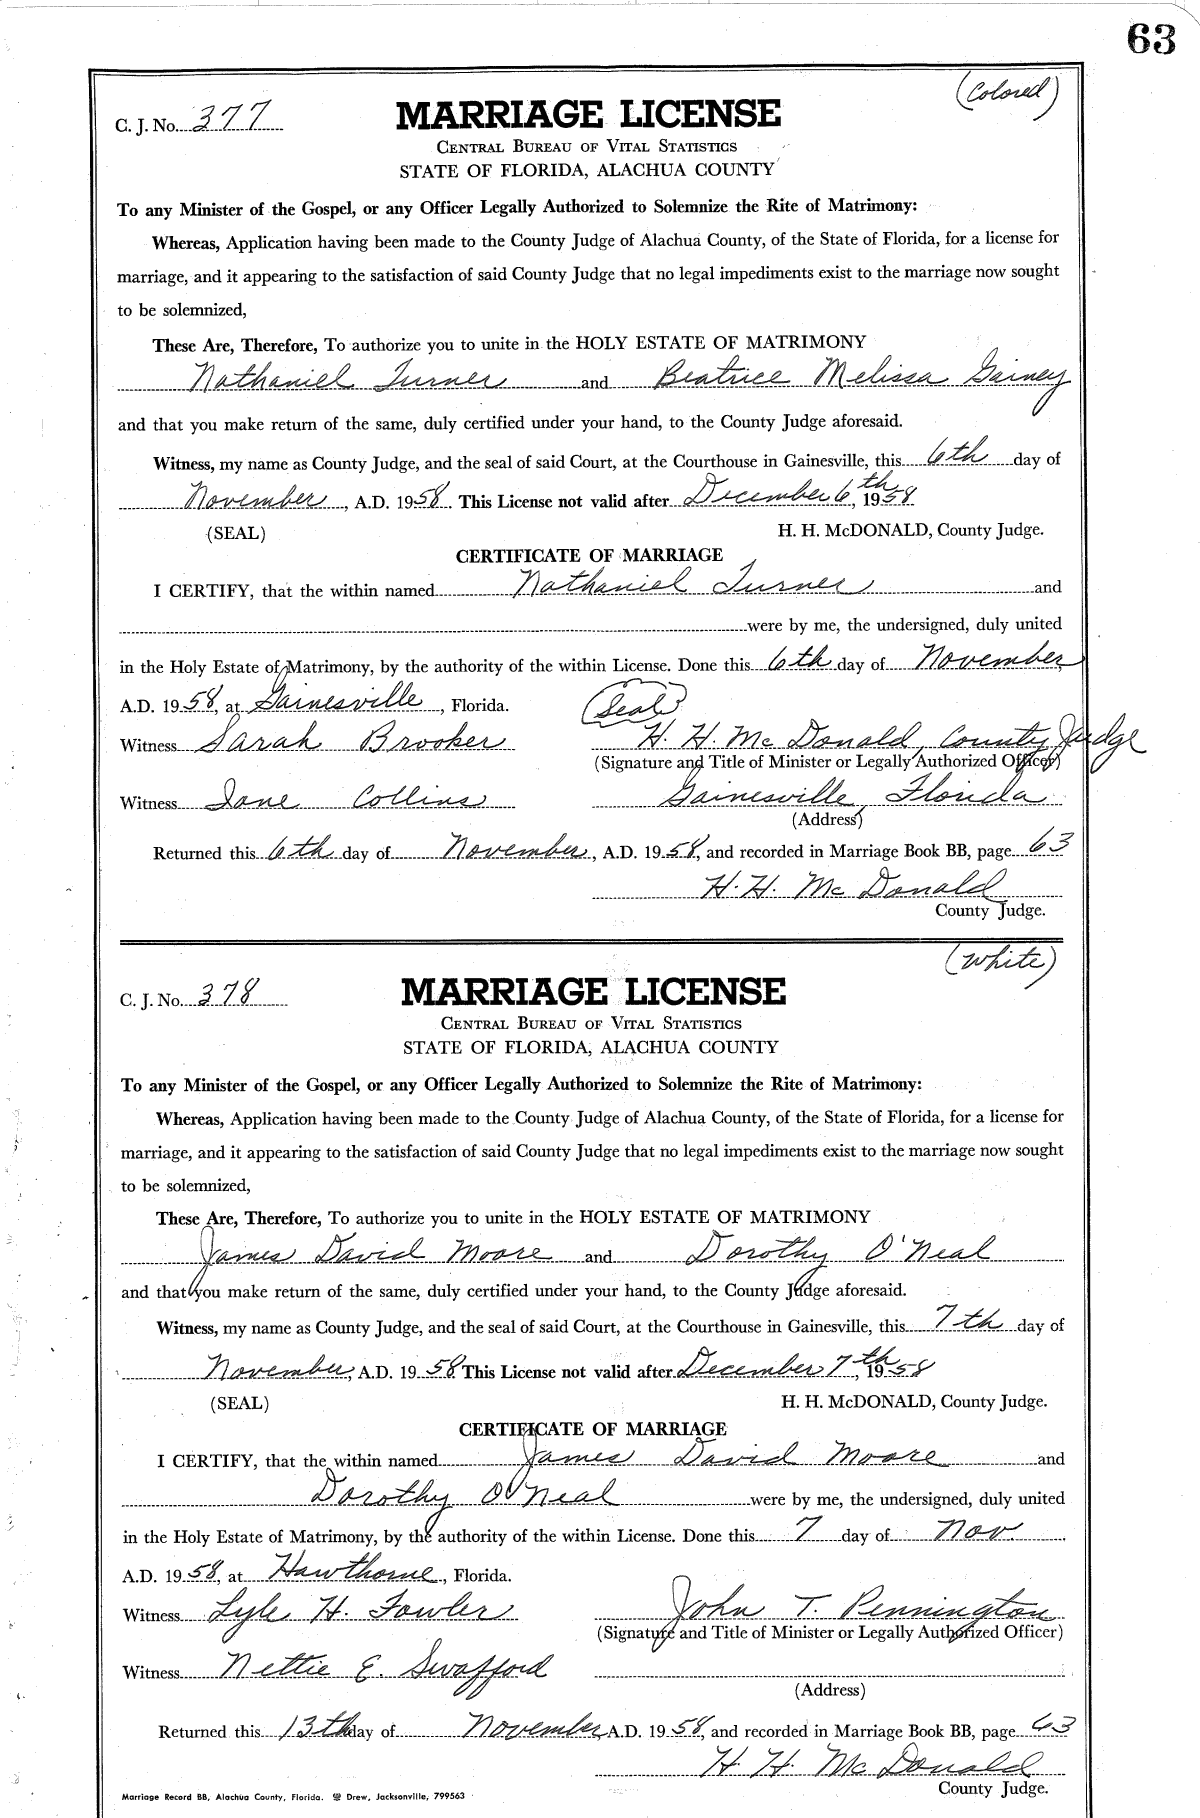 63
(Colored)
C. J. No. 377
MARRIAGE LICENSE
CENTRAL BUREAU OF VITAL STATISTICS
STATE OF FLORIDA, ALACHUA COUNTY
To any Minister of the Gospel, or any Officer Legally Authorized to Solemnize the Rite of Matrimony:
Whereas, Application having been made to the County Judge of Alachua County, of the State of Florida, for a license for
marriage, and it appearing to the satisfaction of said County Judge that no legal impediments exist to the marriage now sought
to be solemnized,
These Are, Therefore, To authorize you to unite in the HOLY ESTATE OF MATRIMONY
Nathaniel Turner and Beatrice Melissa Gainey
and that you make return of the same, duly certified under your hand, to the County Judge aforesaid.
Witness, my name as County Judge, and the seal of said Court, at the Courthouse in Gainesville, this 6th day of
November, A.D. 1958. This License not valid after December 6th, 1958
(SEAL) H. H. McDONALD, County Judge.
CERTIFICATE OF MARRIAGE
I CERTIFY, that the within named Nathaniel Turner and
were by me, the undersigned, duly united
in the Holy Estate of Matrimony, by the authority of the within License. Done this 6th day of November
A.D. 1958, at Gainesville, Florida. (Seal)
Witness Sarah Brooker H. H. Mc Donald, County Judge
(Signature and Title of Minister or Legally Authorized Officer)
Witness Jane Collins Gainesville, Florida
(Address)
Returned this 6th day of November, A.D. 1958, and recorded in Marriage Book BB, page 63
H. H. Mc Donald
County Judge.
(White)
C. J. No. 378
MARRIAGE LICENSE
CENTRAL BUREAU OF VITAL STATISTICS
STATE OF FLORIDA, ALACHUA COUNTY
To any Minister of the Gospel, or any Officer Legally Authorized to Solemnize the Rite of Matrimony:
Whereas, Application having been made to the County Judge of Alachua County, of the State of Florida, for a license for
marriage, and it appearing to the satisfaction of said County Judge that no legal impediments exist to the marriage now sought
to be solemnized,
These Are, Therefore, To authorize you to unite in the HOLY ESTATE OF MATRIMONY
James David Moore and Dorothy O'Neal
and that you make return of the same, duly certified under your hand, to the County Judge aforesaid.
Witness, my name as County Judge, and the seal of said Court, at the Courthouse in Gainesville, this 7th day of
November, A.D. 1958 This License not valid after December 7th, 1958
(SEAL) H. H. McDONALD, County Judge.
CERTIFICATE OF MARRIAGE
I CERTIFY, that the within named James David Moore and
Dorothy O'Neal were by me, the undersigned, duly united
in the Holy Estate of Matrimony, by the authority of the within License. Done this 7 day of Nov.
A.D. 1958, at Hawthorne, Florida.
Witness Lyle H. Fowler John T. Pennington
(Signature and Title of Minister or Legally Authorized Officer)
Witness Nettie E. Swafford
(Address)
Returned this 13th day of November A.D. 1958, and recorded in Marriage Book BB, page 63
H. H. Mc Donald
County Judge.
Marriage Record BB, Alachua County, Florida. Drew, Jacksonville, 799563